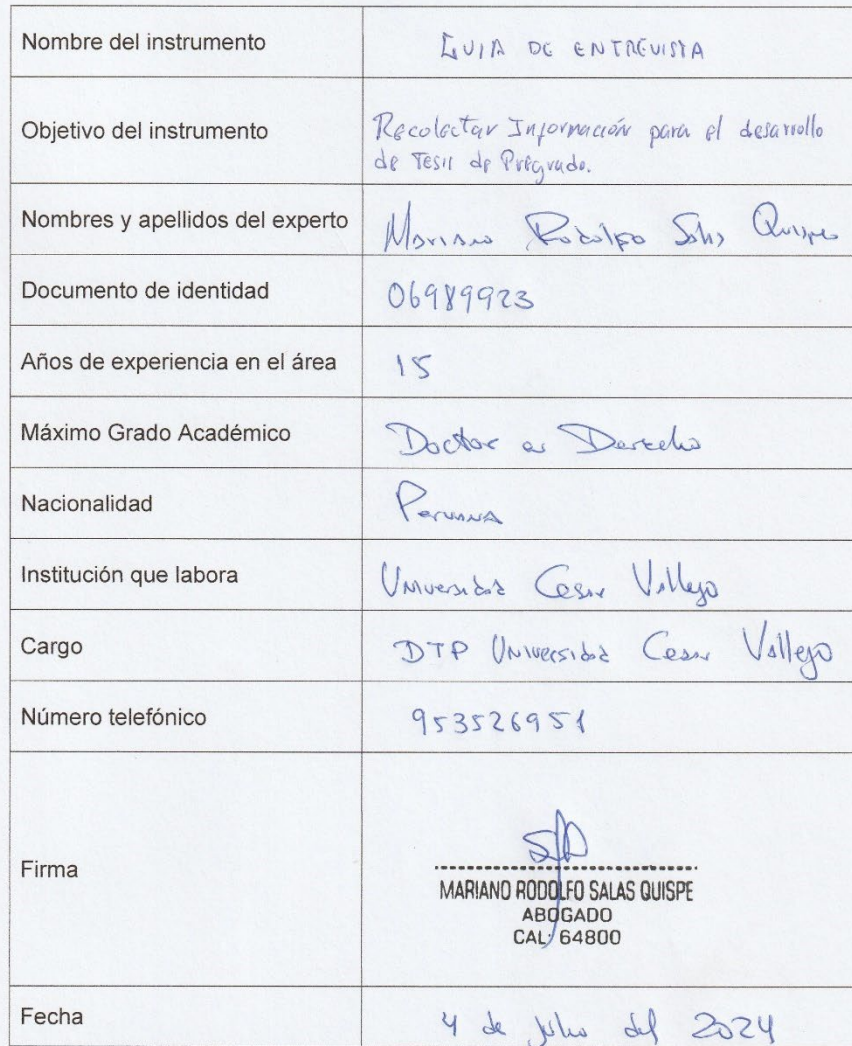 Nombre del instrumento
GUIA DE ENTREVISTA
Objetivo del instrumento
Recolectar Información para el desarrollo
de Tesis de Pregrado.
Nombres y apellidos del experto
Mariano Rodolfo Salas Quispe
Documento de identidad
06989923
Años de experiencia en el área
15
Máximo Grado Académico
Doctor en Derecho
Nacionalidad
Peruana
Institución que labora
Universidad Cesar Vallejo
Cargo
DTP Universidad Cesar Vallejo
Número telefónico
953526951
Firma
MARIANO RODOLFO SALAS QUISPE
ABOGADO
CAL: 64800
Fecha
4 de Julio del 2024